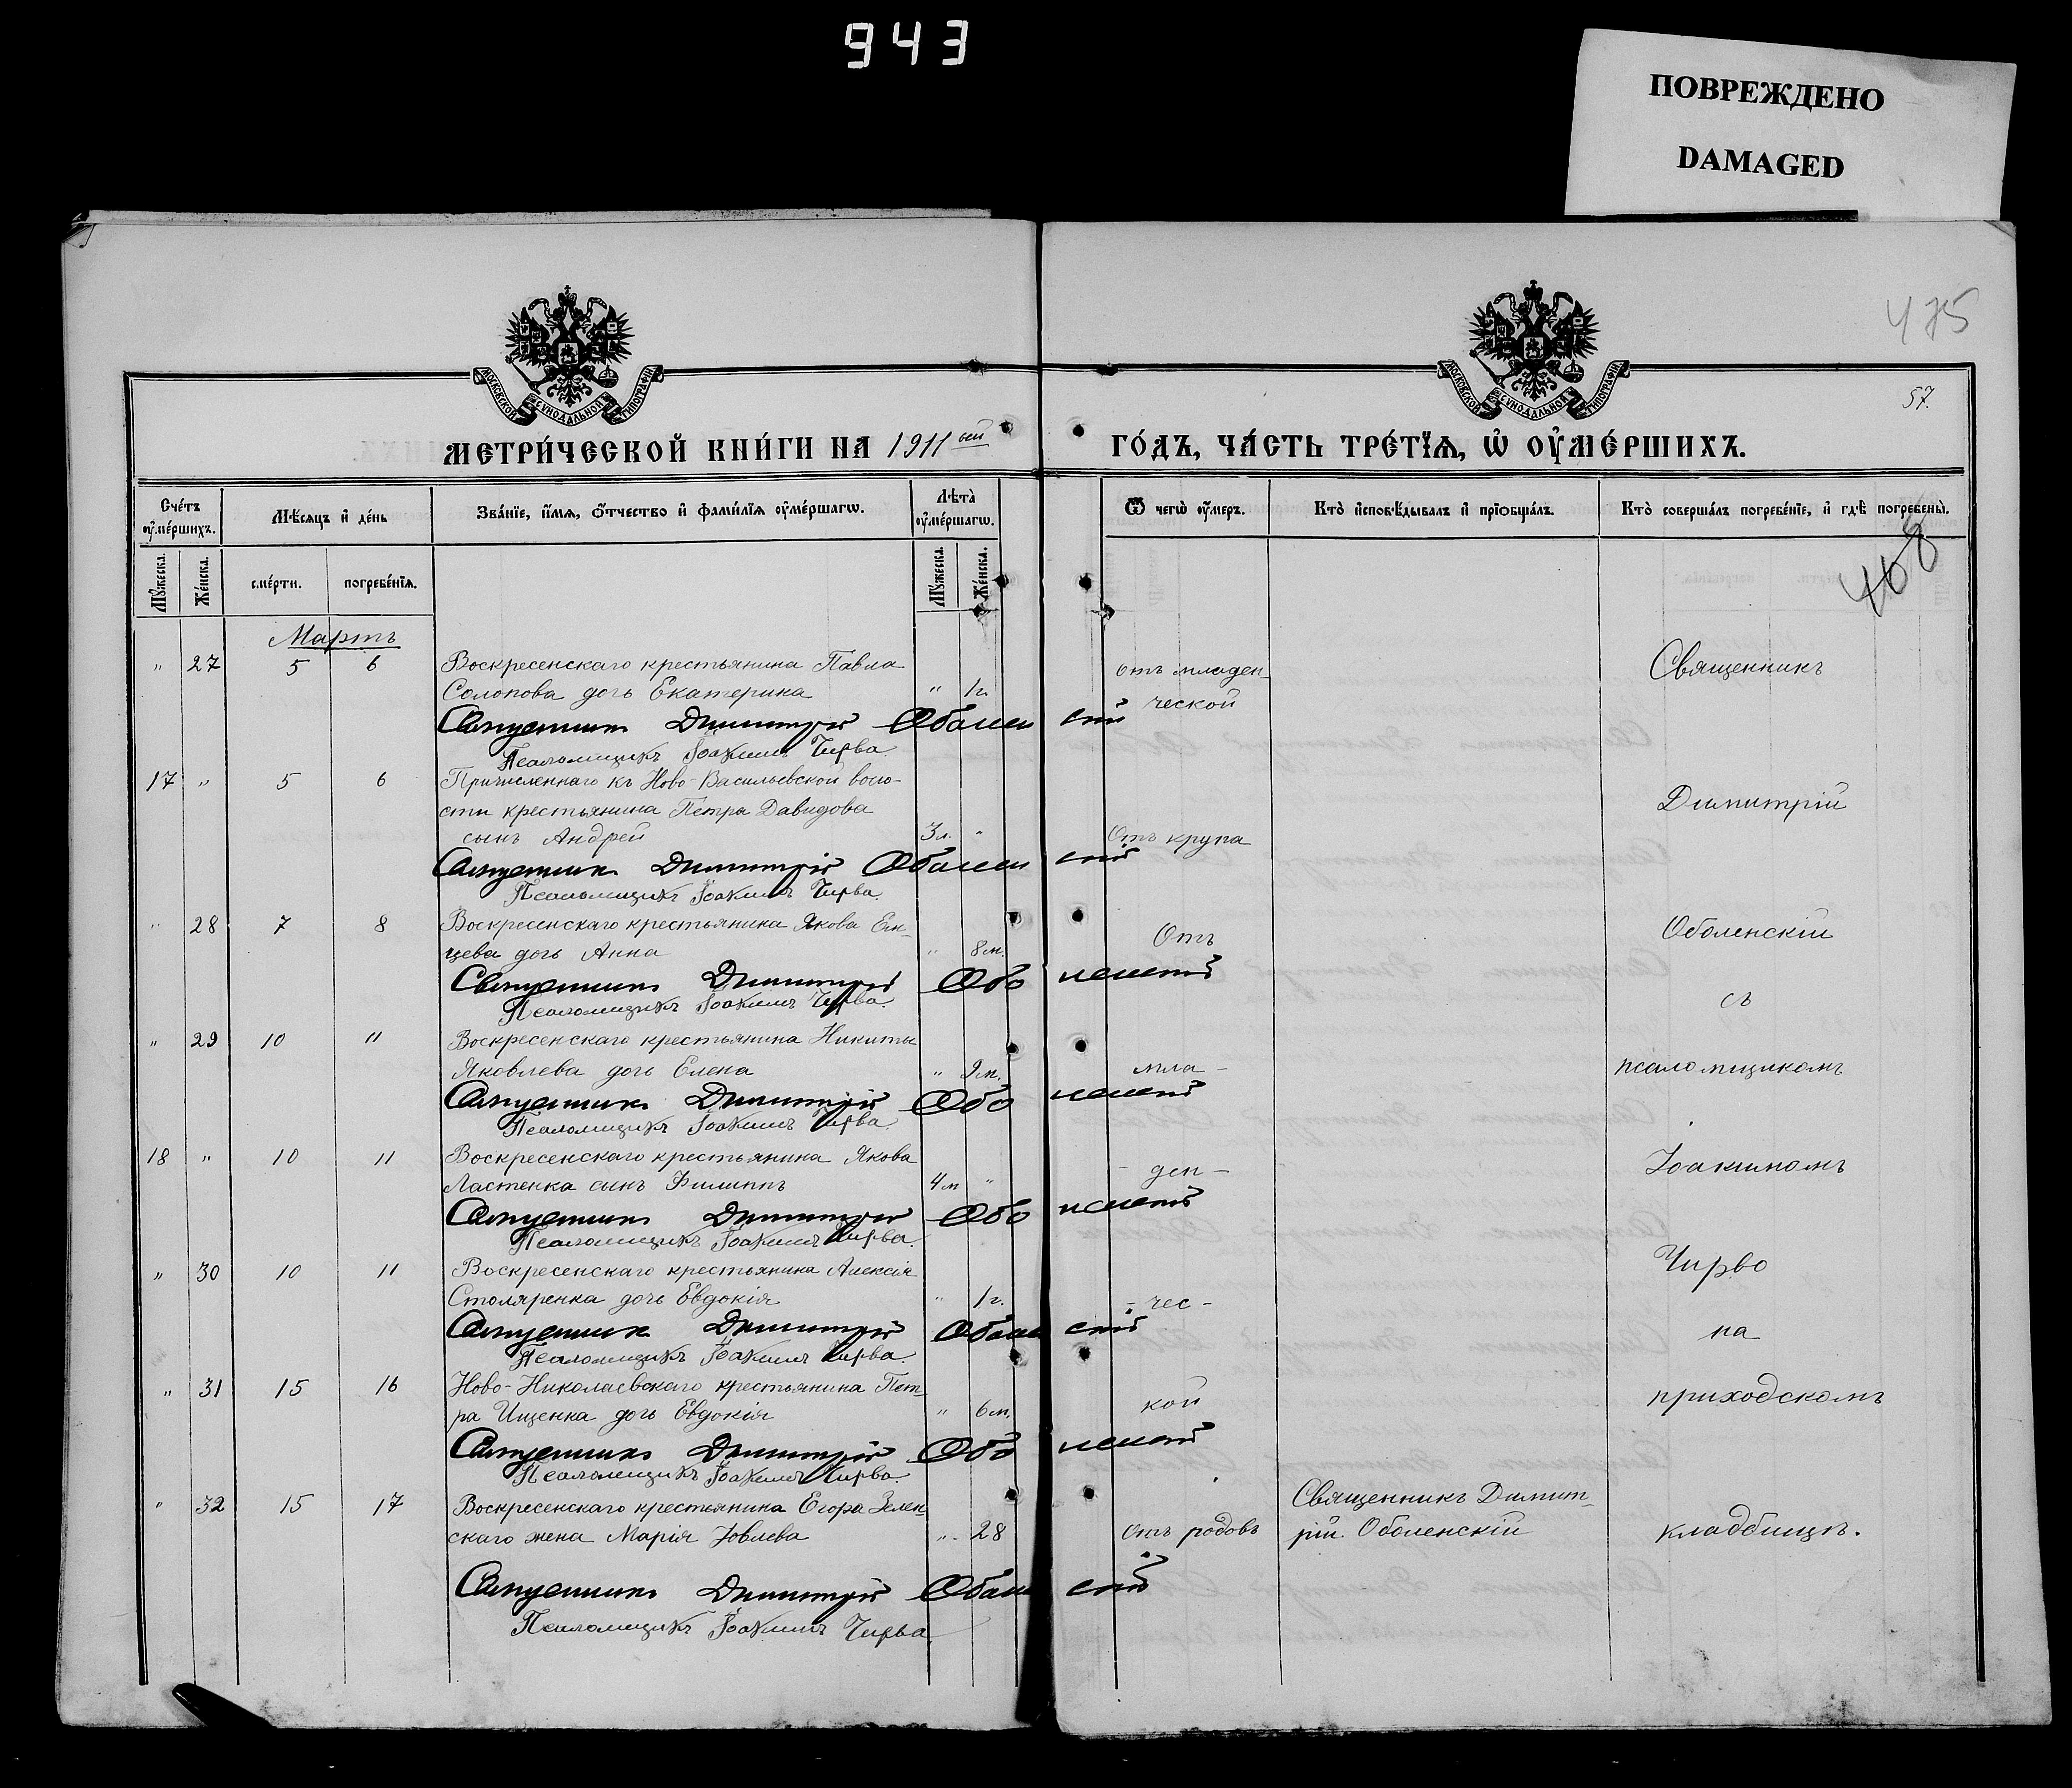 943
ПОВРЕЖДЕНО
DAMAGED
475
57.
МОСКОВСКОЙ СѴНОДАЛЬНОЙ ТИПОГРАФІИ
МОСКОВСКОЙ СѴНОДАЛЬНОЙ ТИПОГРАФІИ
МЕТРИ́ЧЕСКОЙ КНИ́ГИ НА 1911 ый ГО́ДЪ, ЧА́СТЬ ТРЕ́ТЇѦ, Ѡ҆ ОУ҆МЕ́РШИХЪ.
Сче́тъ оу҆ме́ршихъ.
Мѣ́сяцъ и҆ де́нь
Зва́нїе, и҆́мѧ, ѻ҆́тчество и҆ фами́лїѧ оу҆ме́ршагѡ.
Лѣта̀ оу҆ме́ршагѡ.
Ѿ чегѡ̀ оу҆́меръ.
Кто̀ и҆сповѣ́дывалъ и҆ прїѡбща́лъ.
Кто̀ соверша́лъ погребе́нїе, и҆ гдѣ̀ погребены̀.
Мꙋ́жеска. Же́нска. сме́рти. погребе́нїѧ. Мꙋ́жеска. Же́нска.
468
Мартъ
" 27 5 6 Воскресенскаго крестьянина Павла
Солопова дочь Екатерина " 1 г. отъ младен-
ческой Священникъ
Священникъ Димитрій Оболенскій
Псаломщикъ Іоакимъ Чирва
17 " 5 6 Причисленнаго къ Ново-Васильевской воло-
сти крестьянина Петра Давидова Димитрій
сынъ Андрей 3 л. " Отъ крупа
Священникъ Димитрій Оболенскій
Псаломщикъ Іоакимъ Чирва.
" 28 7 8 Воскресенскаго крестьянина Якова Ен-
цева дочь Анна " 8 м. Отъ Оболенскій
Священникъ Димитрій Оболенскій
Псаломщикъ Іоакимъ Чирва. съ
" 29 10 11 Воскресенскаго крестьянина Никиты
Яковлева дочь Елена " 9 м. мла- псаломщикомъ
Священникъ Димитрій Оболенскій
Псаломщикъ Іоакимъ Чирва.
18 " 10 11 Воскресенскаго крестьянина Якова
Ластенка сынъ Филиппъ 4 м " - ден - Іоакимомъ
Священникъ Димитрій Оболенскій
Псаломщикъ Іоакимъ Чирва.
" 30 10 11 Воскресенскаго крестьянина Алексія Чирво
Столяренка дочь Евдокія " 1 г. - чес -
Священникъ Димитрій Оболенскій на
Псаломщикъ Іоакимъ Чирва.
" 31 15 16 Ново-Николаевскаго крестьянина Пет-
ра Ищенка дочь Евдокія " 6 м. кой приходскомъ
Священникъ Димитрій Оболенскій
Псаломщикъ Іоакимъ Чирва.
" 32 15 17 Воскресенскаго крестьянина Егора Зелен- Священникъ Димит-
скаго жена Марія Іовлева " 28 отъ родовъ рій Оболенскій кладбищѣ.
Священникъ Димитрій Оболенскій
Псаломщикъ Іоакимъ Чирва